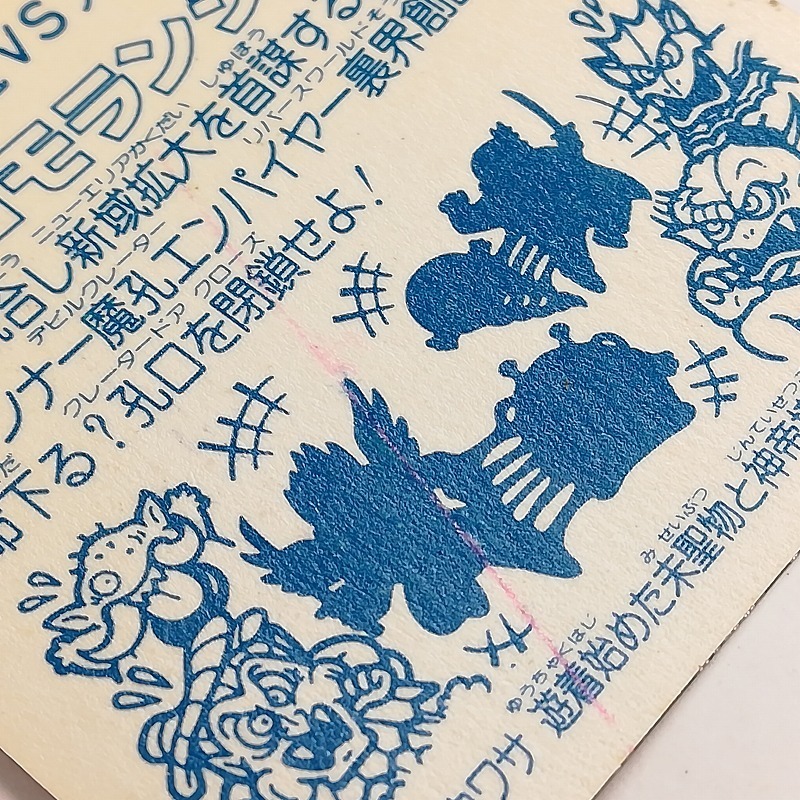 VS
モランジ
しゅぼう
ニューエリアかくだい
リバースワールドそう
し新域拡大を首謀する
デビルクレーター
ンナー魔孔エンパイヤー裏界創
クレータードア クローズ
下る?孔口を閉鎖せよ!
じんていせつ
み せいぶつ
ゆうちゃくはじ
カワサ 遊着始めた未聖物と神帝